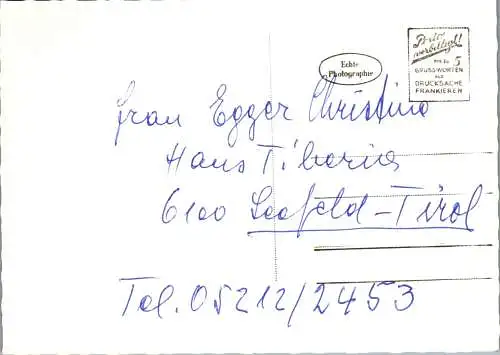 Porto
verbilligt!
mit zu 5
GRUSSWORTEN
ALS
DRUCKSACHE
FRANKIEREN
Echte
Photographie
Frau Egger Christina
Haus Tiberius
6100 Seefeld-Tirol
Tel. 05212/2453